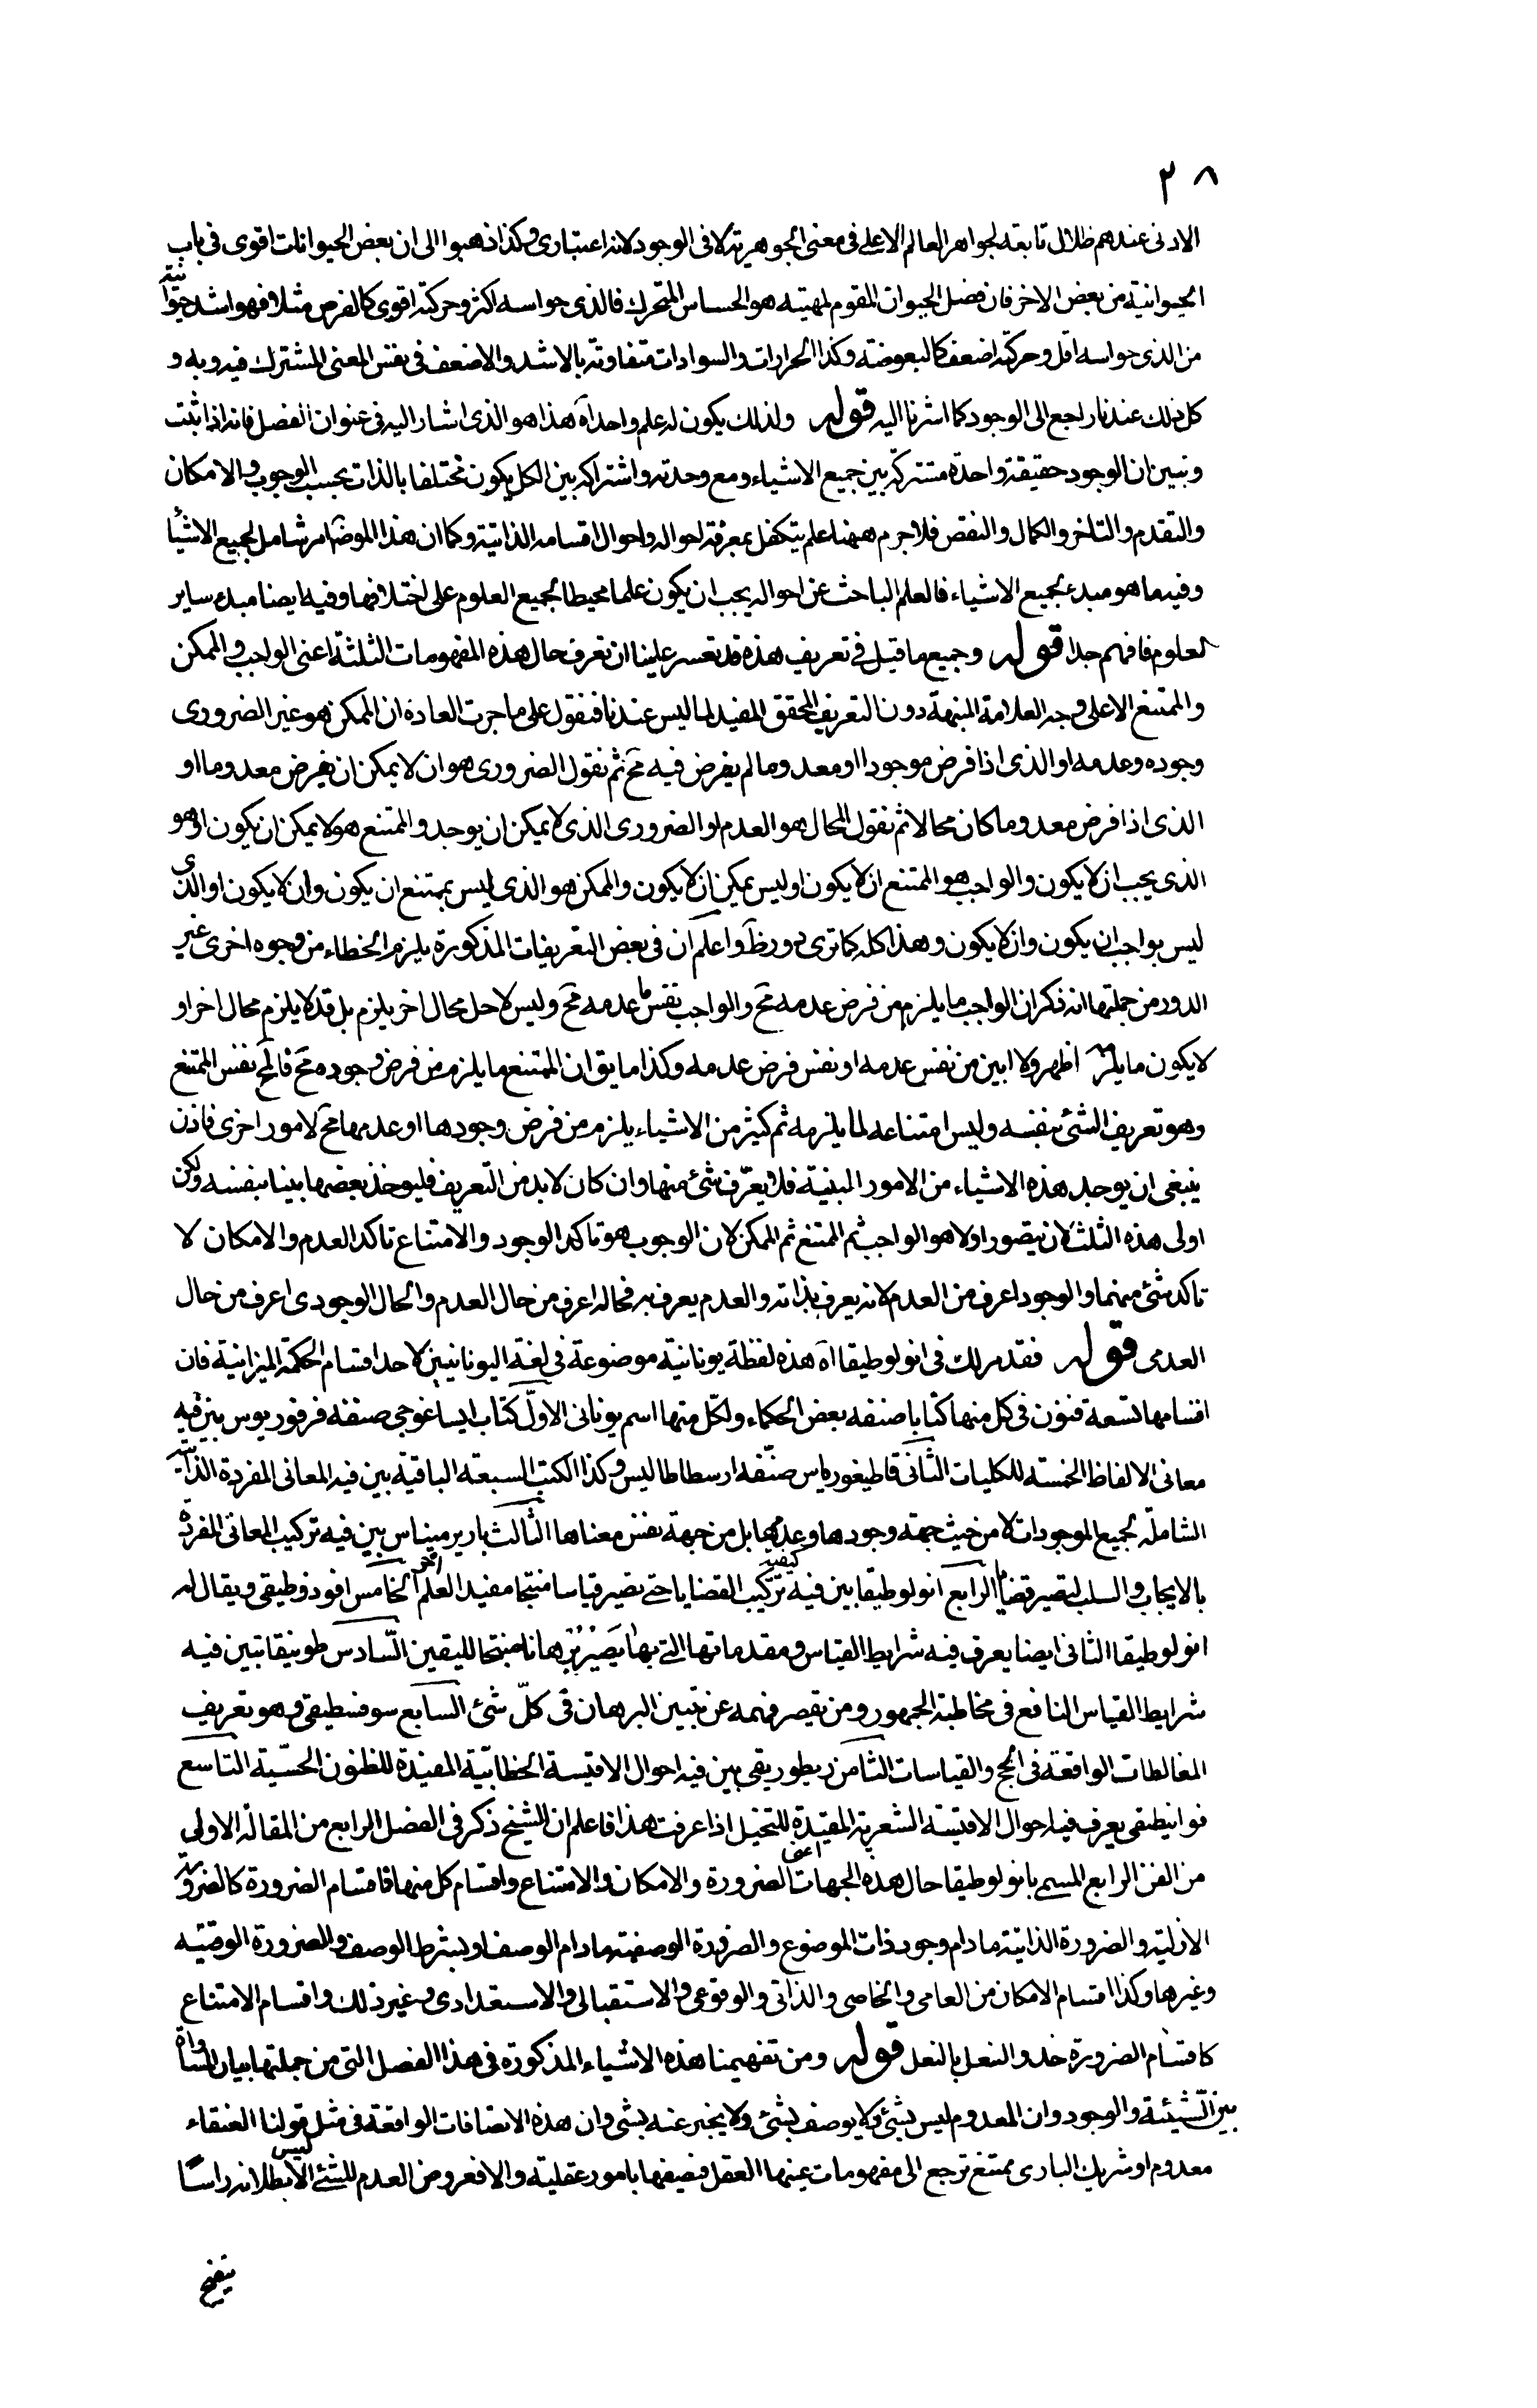 ٣٨
الادنى عندهم ظلال تابعة لجواهر العالم الاعلى فى معنى الجوهرية لا فى الوجود لانه اعتبارى وكذا ذهبوا الى ان بعض الحيوانات اقوى فى باب
الحيوانية من بعض الاخر فان فصل الحيوان المقوم لمهيته هو الحساس المتحرك فالذى حواسه اكثر وحركته اقوى كالفرس مثلا فهو اشد حيوانية
من الذى حواسه اقل وحركته اضعف كالبعوضة وكذا الحرارات والسوادات متفاوتة بالاشد والاضعف فى نفس المعنى المشترك فيه وبه و
كل ذلك عندنا راجع الى الوجود كما اشرنا اليه قوله ولذلك يكون له علم واحد آه هذا هو الذى اشار اليه فى عنوان الفصل فانه اذا ثبت
وتبين ان الوجود حقيقة واحدة مشتركة بين جميع الاشياء ومع وحدته واشتراكه بين الكل يكون مختلفا بالذات بحسب الوجوب والامكان
والتقدم والتاخر والكمال والنقص فلاجرم ههنا علم يتكفل بمعرفة احواله واحوال اقسامه الذاتية وكما ان هذا الموضع امر شامل لجميع الاشيأ
وفيه ما هو مبدء لجميع الاشياء فالعلم الباحث عن احواله يجب ان يكون علما محيطا لجميع العلوم على اختلافها وفيه ايضا مبدء ساير
لعلوم فافهم جدا قوله وجميع ما قيل فى تعريف هذه قد تعسر علينا ان نعرف حال هذه المفهومات الثلثة اعنى الواجب والممكن
والممتنع الا على وجه العلامة المنبهة دون التعريف المحقق المفيد لما ليس عندنا فنقول على ما جرت العادة ان الممكن هو غير الضرورى
وجوده وعدمه او الذى اذا فرض موجودا او معدوما لم يفرض فيه مح ثم نقول الضرورى هو ان لا يمكن ان يفرض معدوما او
الذى اذا فرض معدوما كان محالا ثم نقول المحال هو العدم او الضرورى الذى لا يمكن ان يوجد والممتنع هو لا يمكن ان يكون او هو
الذى يجب ان لا يكون والواجب هو الممتنع ان لا يكون او ليس يمكن ان لا يكون والممكن هو الذى ليس بممتنع ان يكون وان لا يكون او الذى
ليس بواجب ان يكون وان لا يكون وهذا كله كما ترى دور ظ واعلم ان فى بعض التعريفات المذكورة يلزم الخطاء من وجوه اخرى غير
الدور من جملتها انه ذكر ان الواجب ما يلزم من فرض عدمه مح والواجب نفس عدمه مح وليس لاجل محال اخر يلزم بل قد لا يلزم محال اخر او
لا يكون ما يلزمه اظهر ولا ابين من نفس عدمه او نفس فرض عدمه وكذا ما يق ان الممتنع ما يلزم من فرض وجوده مح فالمح نفس الممتنع
وهو تعريف الشئ بنفسه وليس امتناعه لما يلزمه ثم كثير من الاشياء يلزم من فرض وجودها او عدمها مح لامور اخرى فاذن
ينبغى ان يوجد هذه الاشياء من الامور المبنية فلا يعرّف شئ منها وان كان لا بد من التعريف فليوخذ بعضها بينا بنفسه ولكن
اولى هذه الثلث لان يتصور اولا هو الواجب ثم الممتنع ثم الممكن لان الوجوب هو تاكد الوجود والامتناع تاكد العدم والامكان لا
تاكد شئ منهما والوجود اعرف من العدم لانه يعرف بذاته والعدم يعرف به فحاله اعرف من حال العدم والحال الوجودى اعرف من حال
العدمى قوله فقد مر لك فى انولوطيقا آه هذه لفظة يونانية موضوعة فى لغة اليونانيين لاحد اقسام الحكمة الميزانية فان
اقسامها تسعة فنون فى كل منها كتابا صنفه بعض الحكماء ولكل منها اسم يونانى الاول كتاب ايساغوجى صنفه فرفوريوس بين فيه
معانى الالفاظ الخمسة للكليات الثانى قاطيغورياس صنفه ارسطاطاليس وكذا الكتب السبعة الباقية بين فيه المعانى المفردة الذاتية
الشاملة لجميع الموجودات لا من حيث جهة وجودها وعدمها بل من جهة نفس معناها الثالث باريرميناس بين فيه تركيب المعانى المفردة
بالايجاب والسلب ليصير قضايا الرابع انولوطيقا بين فيه كيفية تركيب القضايا حتى تصير قياسا منتجا مفيد العلم اخر الخامس افودوطيقى ويقال له
انولوطيقا الثانى ايضا يعرف فيه شرايط القياس ومقدماتها التى بها يصير برهانا منتجا لليقين السّادس طوبيقا تبين فيه
شرايط القياس النافع فى مخاطبة الجمهور ومن يقصر فهمه عن تبين البرهان فى كلّ شئ السابع سوفسطيقى وهو تعريف
المغالطات الواقعة فى الحجج والقياسات الثامن ريطوريقى بين فيه احوال الاقيسة الخطابيّة المفيدة للظنون الحسّية التاسع
فوانيطيقى يعرف فيه احوال الاقيسة الشعرية المفيدة للتخيل اذا عرفت هذا فاعلم ان الشيخ ذكر فى الفصل الرابع من المقالة الاولى
من الفن الرابع المسمى بانولوطيقا حال هذه الجهات اعنى الضرورة والامكان والامتناع واقسام كل منها فاقسام الضرورة كالضرورية
الازلية والضرورة الذاتية ما دام وجود ذات الموضوع والضرورة الوصفية ما دام الوصف او بشرط الوصف والضرورة الوقتية
وغيرها وكذا اقسام الامكان من العامى والخاصى والذاتى والوقوعى والاستقبالى والاستعدادى وغير ذلك واقسام الامتناع
كاقسام الضرورة حذو النعل بالنعل قوله ومن تفهيمنا هذه الاشياء المذكورة فى هذا الفصل التى من جملتها بيان المساواة
بين الشيئية والوجود وان المعدوم ليس بشئ ولا يوصف بشئ ولا يخبر عنه بشى وان هذه الاتصافات الواقعة فى مثل قولنا العنقاء
معدوم او شريك البارى ممتنع ترجع الى مفهومات عينها العقل فيصفها بامور عقلية والا فعروض العدم للشئ ليس الا بطلانه راسًا